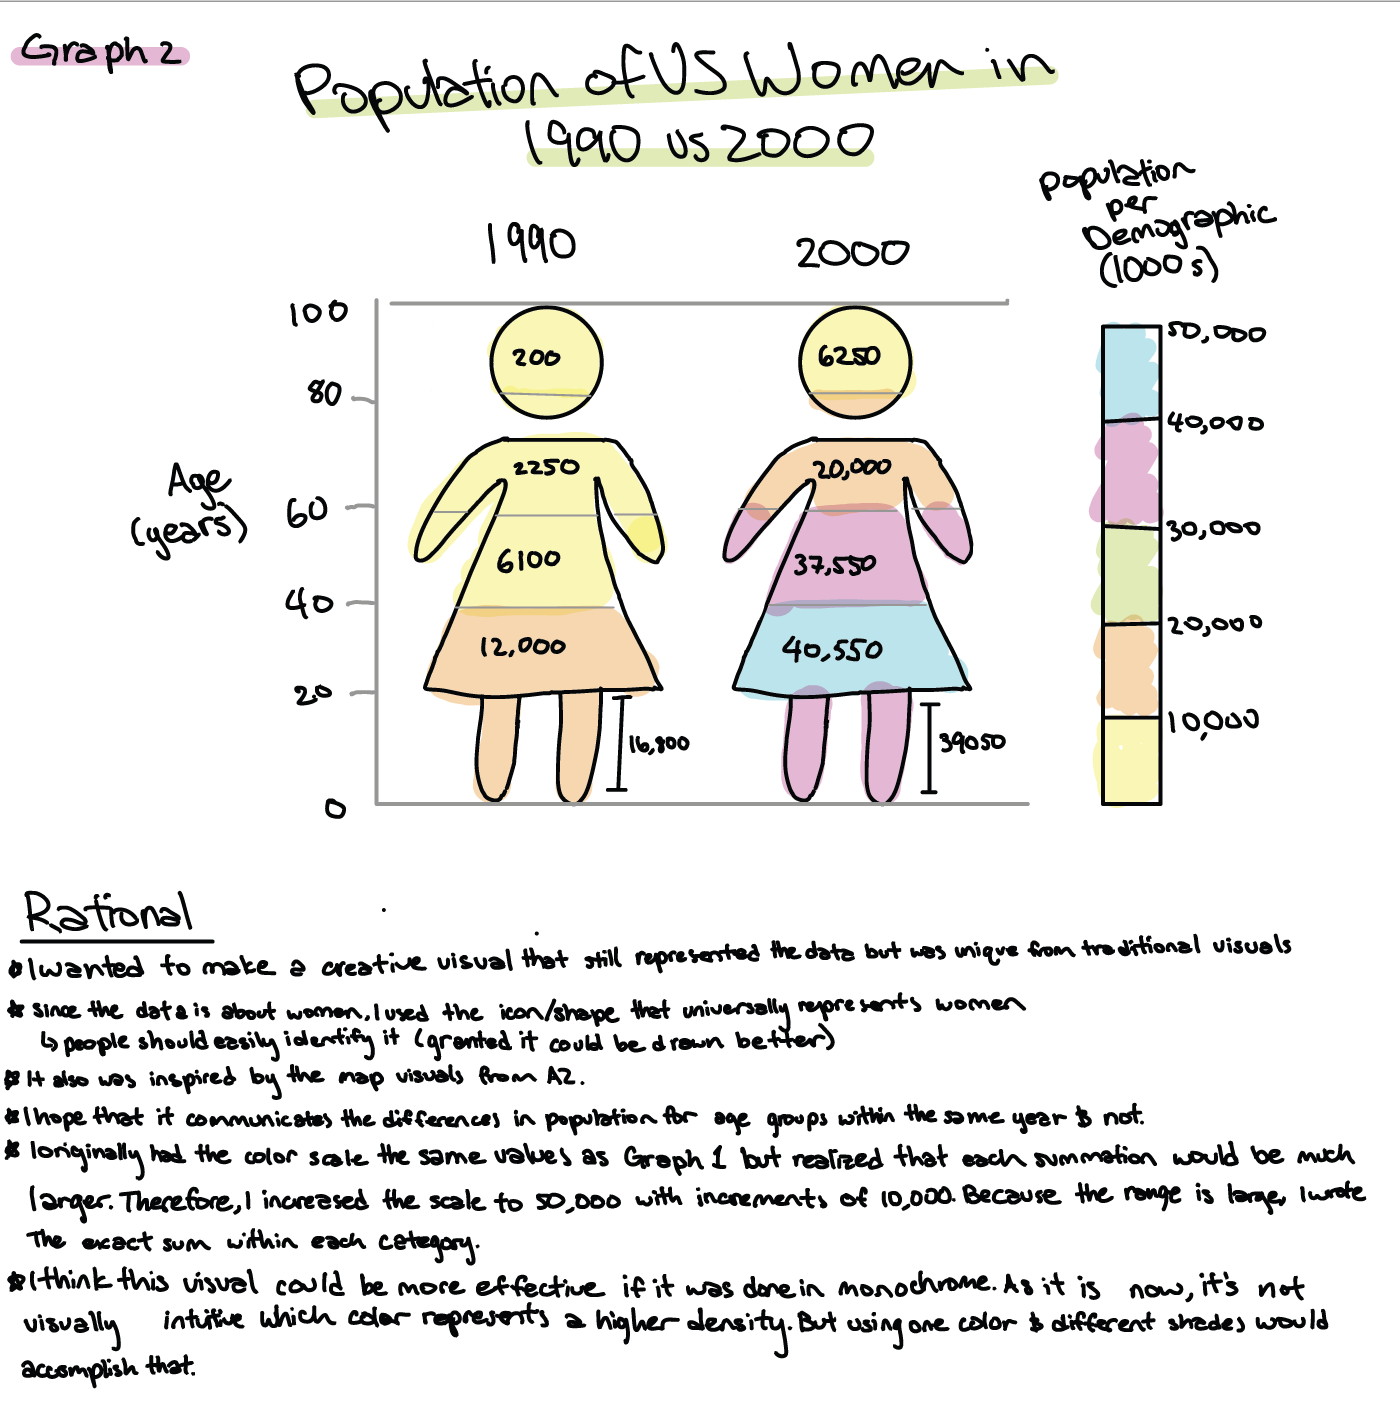 Graph 2
Population of US Women in
1990 vs 2000
Population
per
Demographic
(1000s)
1990
2000
100
80
60
40
20
0
Age
(years)
200
2250
6100
12,000
16,800
6250
20,000
37,550
40,550
39050
50,000
40,000
30,000
20,000
10,000
Rational
* I wanted to make a creative visual that still represented the data but was unique from traditional visuals
* Since the data is about women, I used the icon/shape that universally represents women
↳ people should easily identify it (granted it could be drawn better)
* It also was inspired by the map visuals from A2.
* I hope that it communicates the differences in population for age groups within the same year & not.
* I originally had the color scale the same values as Graph 1 but realized that each summation would be much
larger. Therefore, I increased the scale to 50,000 with increments of 10,000. Because the range is large, I wrote
The exact sum within each category.
* I think this visual could be more effective if it was done in monochrome. As it is now, it's not
visually intuitive which color represents a higher density. But using one color & different shades would
accomplish that.